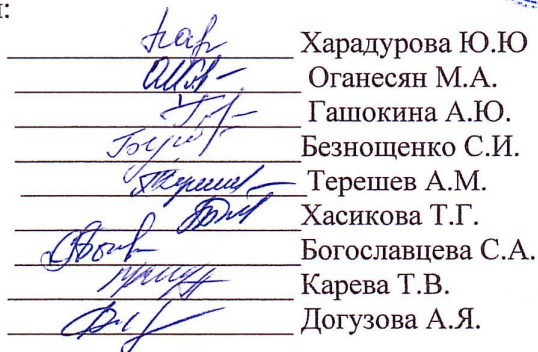 Харадурова Ю.Ю
Оганесян М.А.
Гашокина А.Ю.
Безнощенко С.И.
Терешев А.М.
Хасикова Т.Г.
Богославцева С.А.
Карева Т.В.
Догузова А.Я.